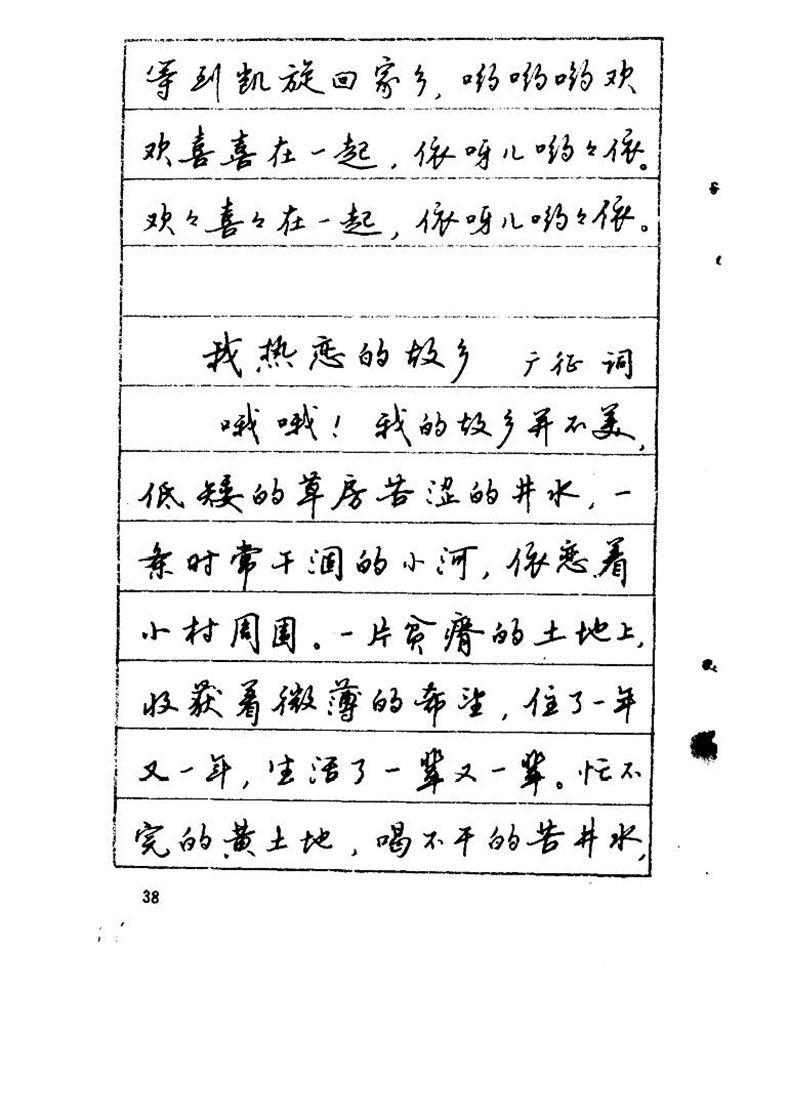 等到凯旋回家乡，哟哟哟欢
欢喜喜在一起，依呀儿哟々依。
欢々喜々在一起，依呀儿哟々依。
我热恋的故乡 广征 词
哦哦！我的故乡并不美，
低矮的草房苦涩的井水，一
条时常干涸的小河，依恋着
小村周围。一片贫瘠的土地上，
收获着微薄的希望，住了一年
又一年，生活了一辈又一辈。忙不
完的黄土地，喝不干的苦井水，
38